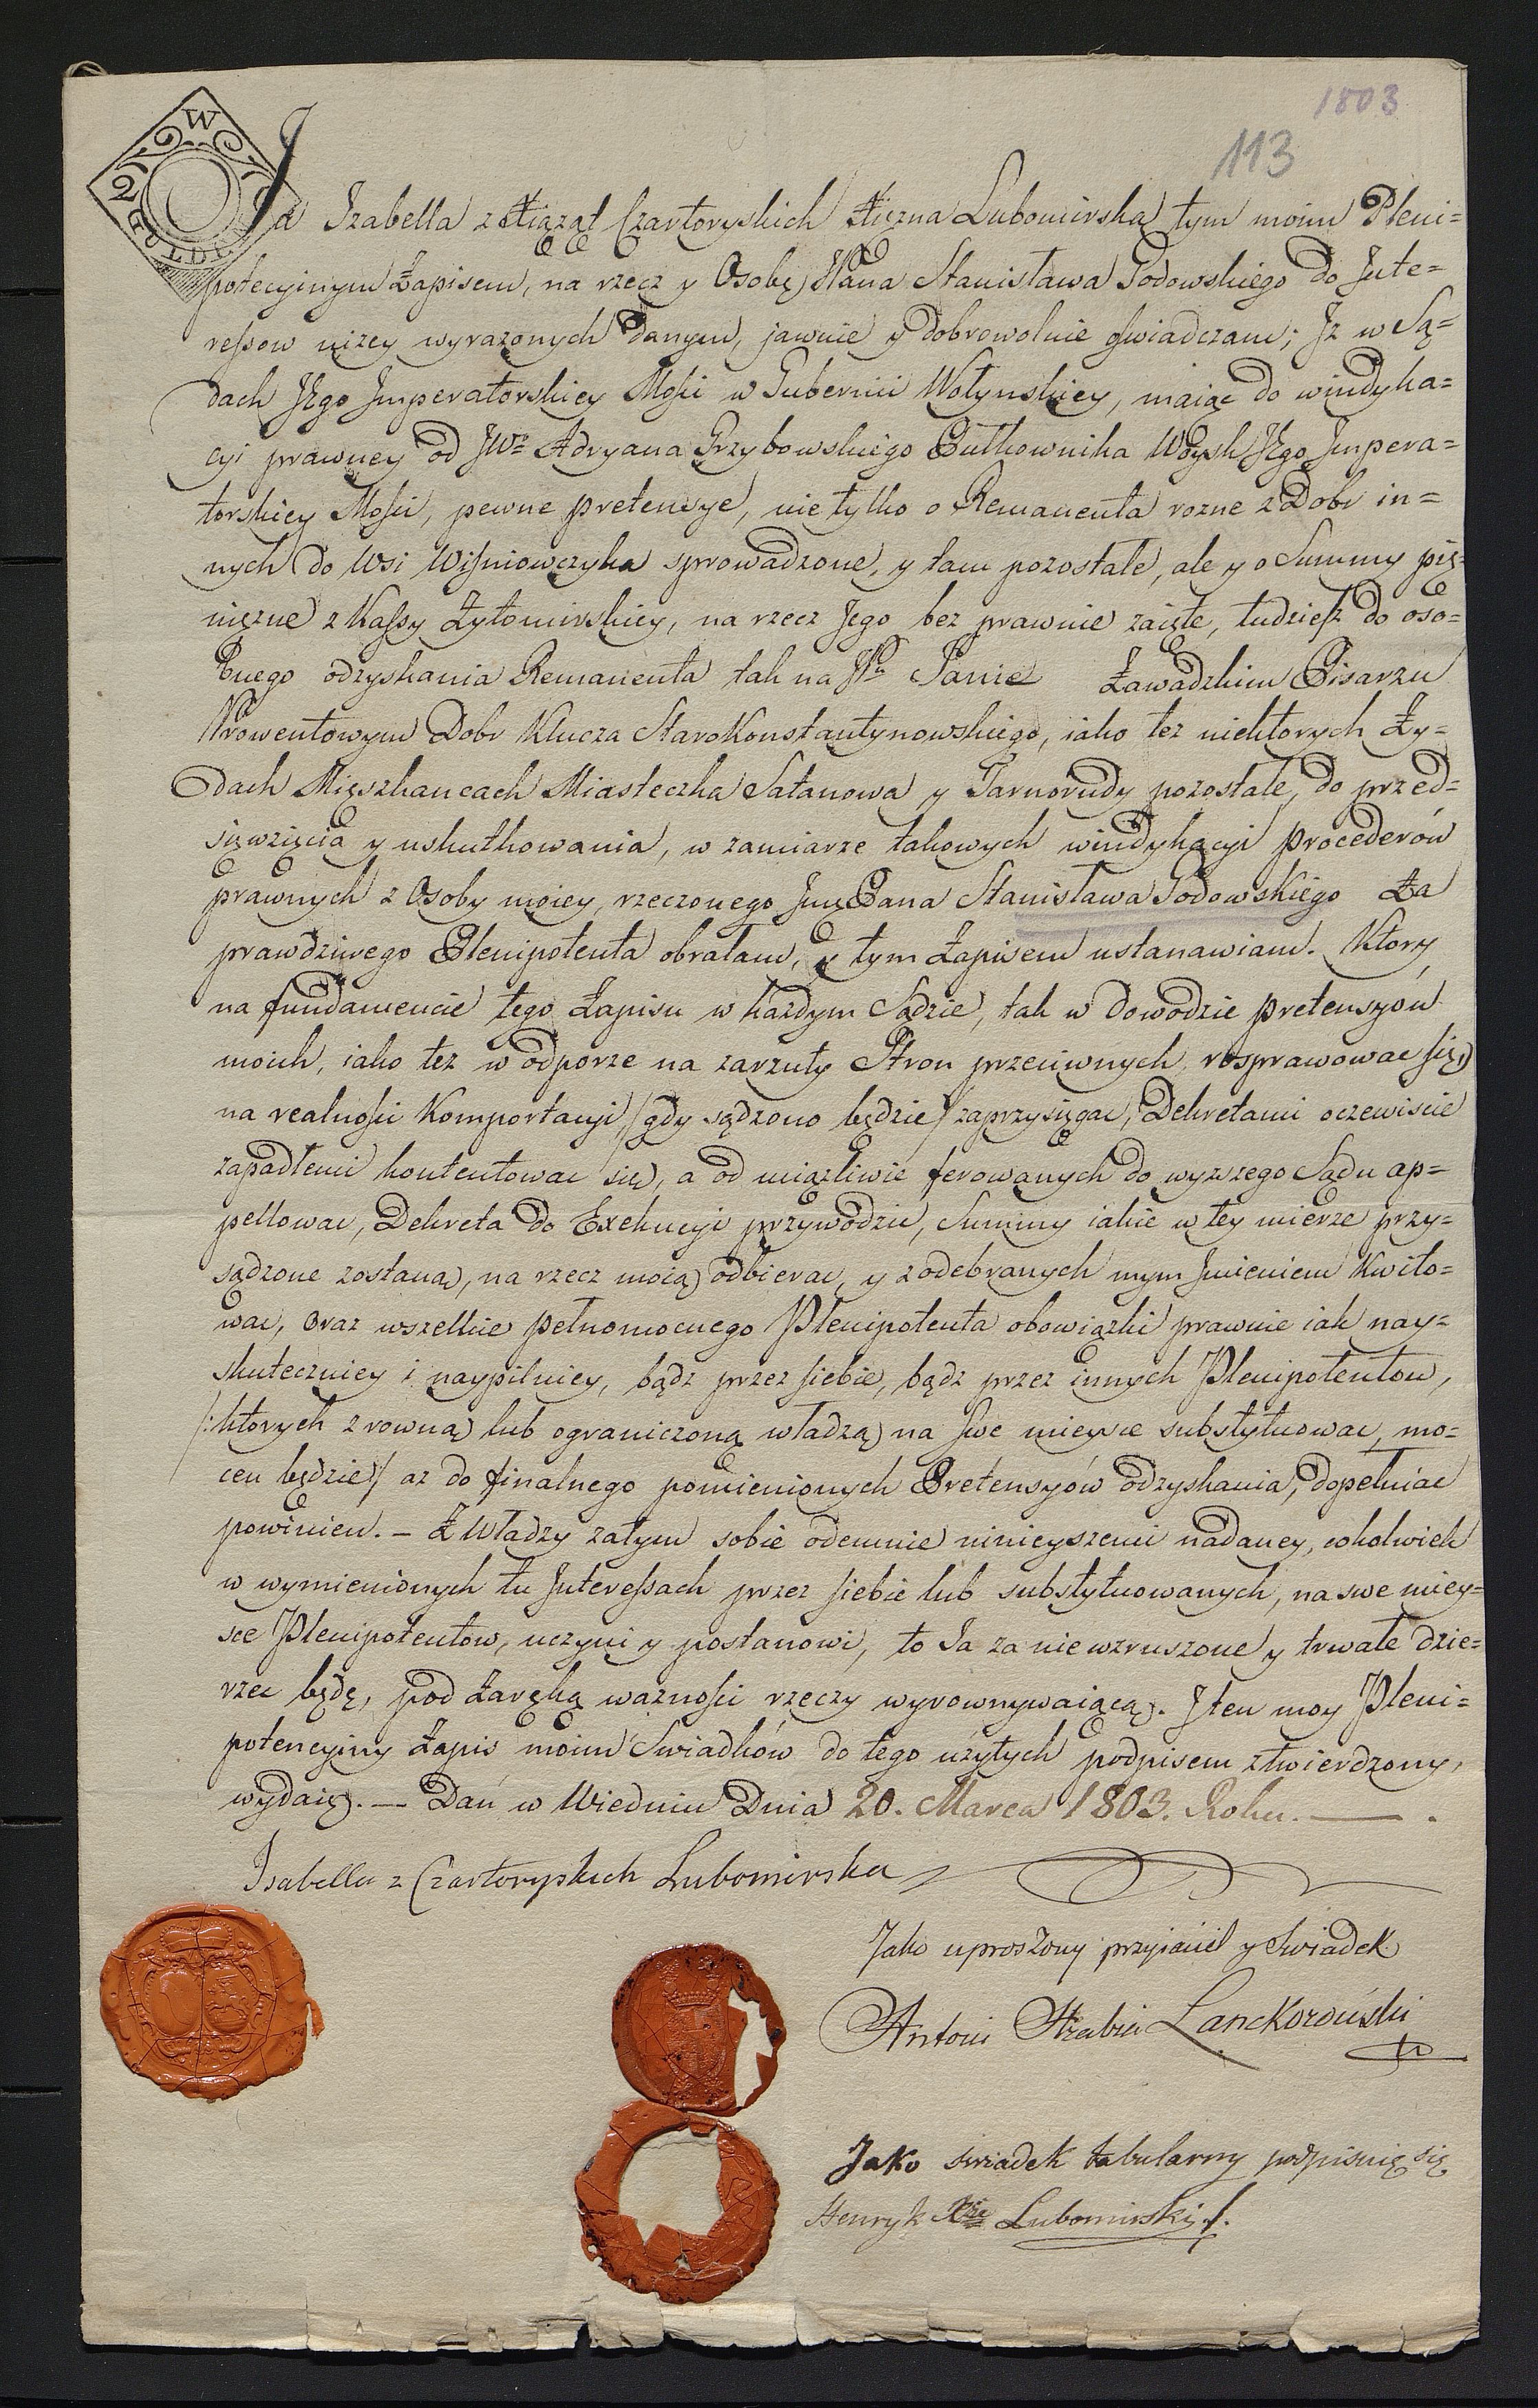 1803
113
W
2 GULDEN
Ja Izabella z Xiążąt Czartoryskich Xiężna Lubomirska tym moim Pleni=
potecyinym Zapisem, na rzecz y Osobę JPana Stanisława Godowskiego do Jnte=
ressow niżey wyrażonych danym, jawnie y dobrowolnie oswiadczam; Jż w Są=
dach JEgo Jmperatorskiey Mości w Gubernii Wołynskiey, maiąc do windyka=
cyi prawney od JWo Adryana Grzybowskiego Pułkownika Woysk JEgo Jmpera=
torskiey Mości, pewne pretensye, nie tylko o Remanenta rozne z Dobr in=
nych do Wsi Wisniowczyka sprowadzone, y tam pozostałe, ale y o Summy pię=
niężne z Kassy Żytomirskiey, na rzecz Jego bez prawnie zaięte, tudziesz do oso=
bnego odzyskania Remanenta tak na Panie Zawadzkim Pisarzu
Prowentowym Dobr Klucza StaroKonstantynowskiego, iako tez niektorych Ży=
dach Mięszkancach Miasteczka Satanowa y Tarnorudy pozostałe, do przed=
sięwzięcia y uskutkowania, w zamiarze takowych windykacyi procederów
prawnych z Osoby moiey, rzeczonego Jmę Pana Stanisława Godowskiego Za
prawdziwego Plenipotenta obrałam, y tym Zapisem ustanawiam. Ktory
na fundamencie tego Zapisu w każdym Sądzie, tak w dowodzie pretensyów
moich, iako tez w odporze na zarzuty Stron przeciwnych rosprawowac się,
na realnosci Komportacyi, /gdy sądzono będzie/ zaprzysięgac, Dekretami oczewiscie
zapadłemi kontentowac się, a od uciążliwie ferowanych do wyzszego Sądu ap=
pellowac, Dekreta do Exekucyi przywodzic, Summy iakie w tey mierze przy=
sądzone zostaną, na rzecz moią odbierac, y z odebranych mym Jmieniem Kwito=
wac, oraz wszelkie pełnomocnego Plenipotenta obowiązki prawnie iak nay=
skuteczniey i naypilniey, bądz przez siebie, bądz przez innych Plenipotentow,
/:ktorych z rowną lub ograniczoną władzą na swe mieysce substytuowac, mo=
cen będzie/ az do finalnego pomienionych Pretensyów odzyskania, dopełniac
powinien. – Z Władzy zatym sobie odemnie ninieyszemi nadaney, cokolwiek
w wymienionych tu Jnteressach przez siebie lub substytuowanych, na swe miey=
sce Plenipotentow, uczyni y postanowi, to Ja za niewzruszone y trwałe dzie=
rzec będę, pod Zaręką waznosci rzeczy wyrownywaiącą. J ten moy Pleni=
potencyiny Zapis moim Swiadków do tego użytych podpisem ztwierdzony,
wydaię. — Dań w Wiedniu Dnia 20. Marca 1803. Roku. — .
Isabella z Czartoryskich Lubomirska
Jako uproszony przyiaciel y Swiadek
Antoni Hrabia Lanckoroński
Jako swiadek tabularny podpisuię się
Henryk Xże Lubomirski